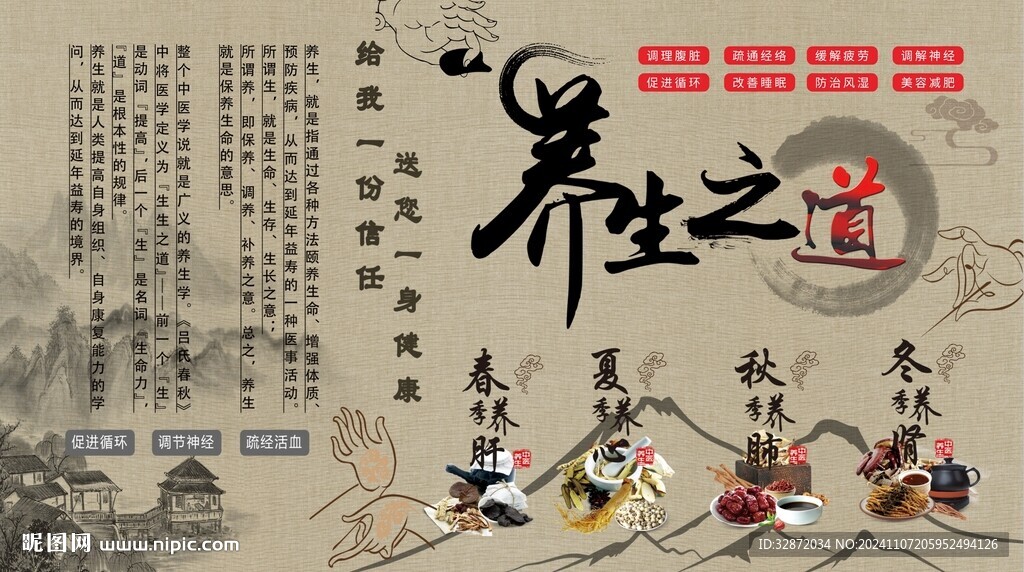 养生之道
调理腹脏 疏通经络 缓解疲劳 调解神经
促进循环 改善睡眠 防治风湿 美容减肥
给我一份信任
送您一身健康
养生，就是指通过各种方法颐养生命、增强体质、
预防疾病，从而达到延年益寿的一种医事活动。
所谓生，就是生命、生存、生长之意；
所谓养，即保养、调养、补养之意。总之，养生
就是保养生命的意思。
整个中医学说就是广义的养生学。《吕氏春秋》
中将医学定义为『生生之道』——前一个『生』
是动词『提高』，后一个『生』是名词『生命力』，
『道』是根本性的规律。
养生就是人类提高自身组织、自身康复能力的学
问，从而达到延年益寿的境界。
促进循环 调节神经 疏经活血
春季养肝
中医养生
夏季养心
中医养生
秋季养肺
中医养生
冬季养肾
中医养生
昵图网 www.nipic.com
ID:32872034 NO:20241107205952494126